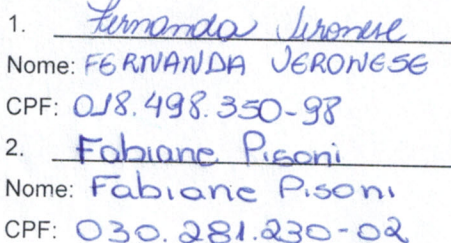 1. Fernanda Veronese
Nome: FERNANDA VERONESE
CPF: 018.498.350-98
2. Fabiane Pisoni
Nome: Fabiane Pisoni
CPF: 030.281.230-02